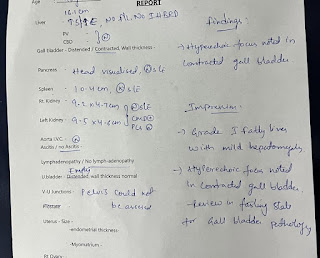 REPORT
Age :
16.1 cm
Liver ↑S/SE, NO FL, NO IHBRD
PV
CBD } (N)
Gall bladder - Distended / Contracted, Wall thickness -
Pancreas - Head visualised, (N) S/E
Spleen : 10.4cm, (N) S/E
Rt. Kidney : 9.2 x 4.7cm } (N) S/E
Left Kidney : 9.5 x 4.6cm } CMD (N) PCS (N)
Aorta IVC - (N)
Ascitis / no Ascitis -
Lymphadenopathy / No lymph-adenopathy
Empty
U.bladder - Distended, wall thickness normal
V-U Junctions : Pelvis could not
Prostate be assessed
Uterus - Size -
-endometrial thickness
-Myometrium -
Rt Ovary -
Findings:
→ Hyperechoic focus noted in
contracted gall bladder
Impression:
→ Grade I fatty liver
with mild hepatomegaly.
→ Hyperechoic focus noted
in contracted gall bladder.
- Review in fasting state
for Gall bladder pathology